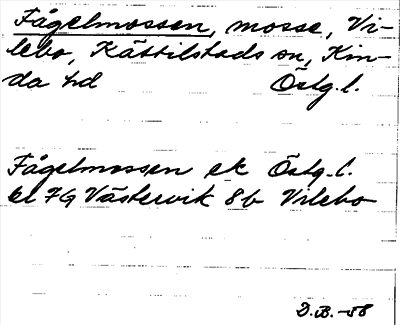 Fågelmossen, mosse, Vi-
lebo, Kättilstads sn, Kin-
da hd Östg.l.
Fågelmossen ek Östg.l.
bl 79 Västervik 8b Vilebo
D.B.-58